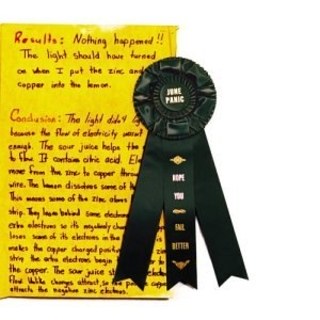 Results: Nothing happened!!
The light should have turned
on when I put the zinc and
copper into the lemon.
Conclusion: The light didn't
because the flow of electricity wasn't
enough. The sour juice helps the
to flow. It contains citric acid.
move from the zinc to copper
wire. The lemon dissolves some of the
This means some of the zinc atoms
strip. They leave behind some electrons
extra electrons so its negatively
loses some of its electrons in the
makes the copper charged positive
strip the extra electrons begin
to the copper. The sour juice
flow. Unlike charges attract, so the
attracts the negative zinc electrons.
JUNE
PANIC
HOPE
YOU
FAIL
BETTER